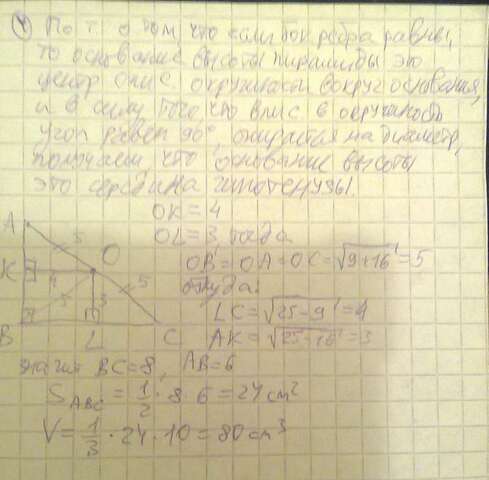 4) По т. о том, что если бок. ребра равны,
то основание высоты пирамиды это
центр опис. окружности вокруг основания,
и в силу того, что впис. в окружность
угол равен 90°, опирается на диаметр,
получаем, что основание высоты
это середина гипотенузы.
OK = 4
OL = 3 тогда
OB = OA = OC = √9+16 = 5
откуда:
LC = √25-9 = 4
AK = √25-16 = 3
A
5
O
K
4
5
5
3
B
L
C
значит BC=8, AB=6
S ABC = 1/2 · 8 · 6 = 24 см²
V = 1/3 · 24 · 10 = 80 см³